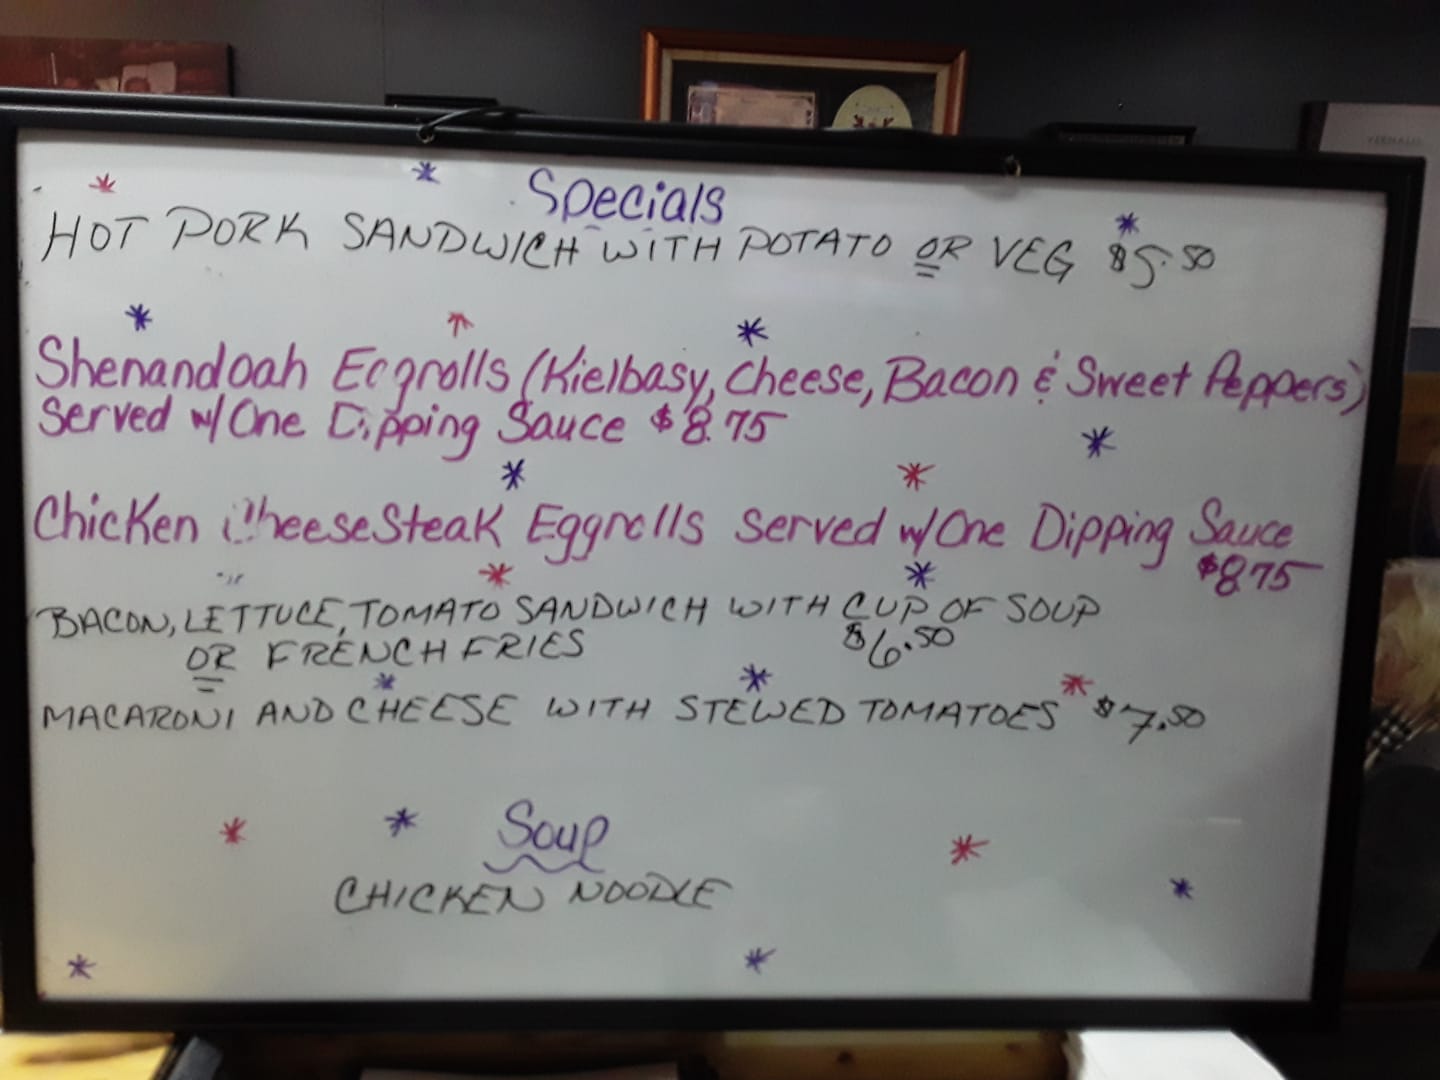 Specials
HOT PORK SANDWICH WITH POTATO OR VEG $5.50
Shenandoah Eggrolls (Kielbasy, Cheese, Bacon & Sweet Peppers)
Served w/One Dipping Sauce $8.75
Chicken CheeseSteak Eggrolls Served w/One Dipping Sauce
$8.75
BACON, LETTUCE, TOMATO SANDWICH WITH CUP OF SOUP
OR FRENCH FRIES $6.50
MACARONI AND CHEESE WITH STEWED TOMATOES $7.50
Soup
CHICKEN NOODLE